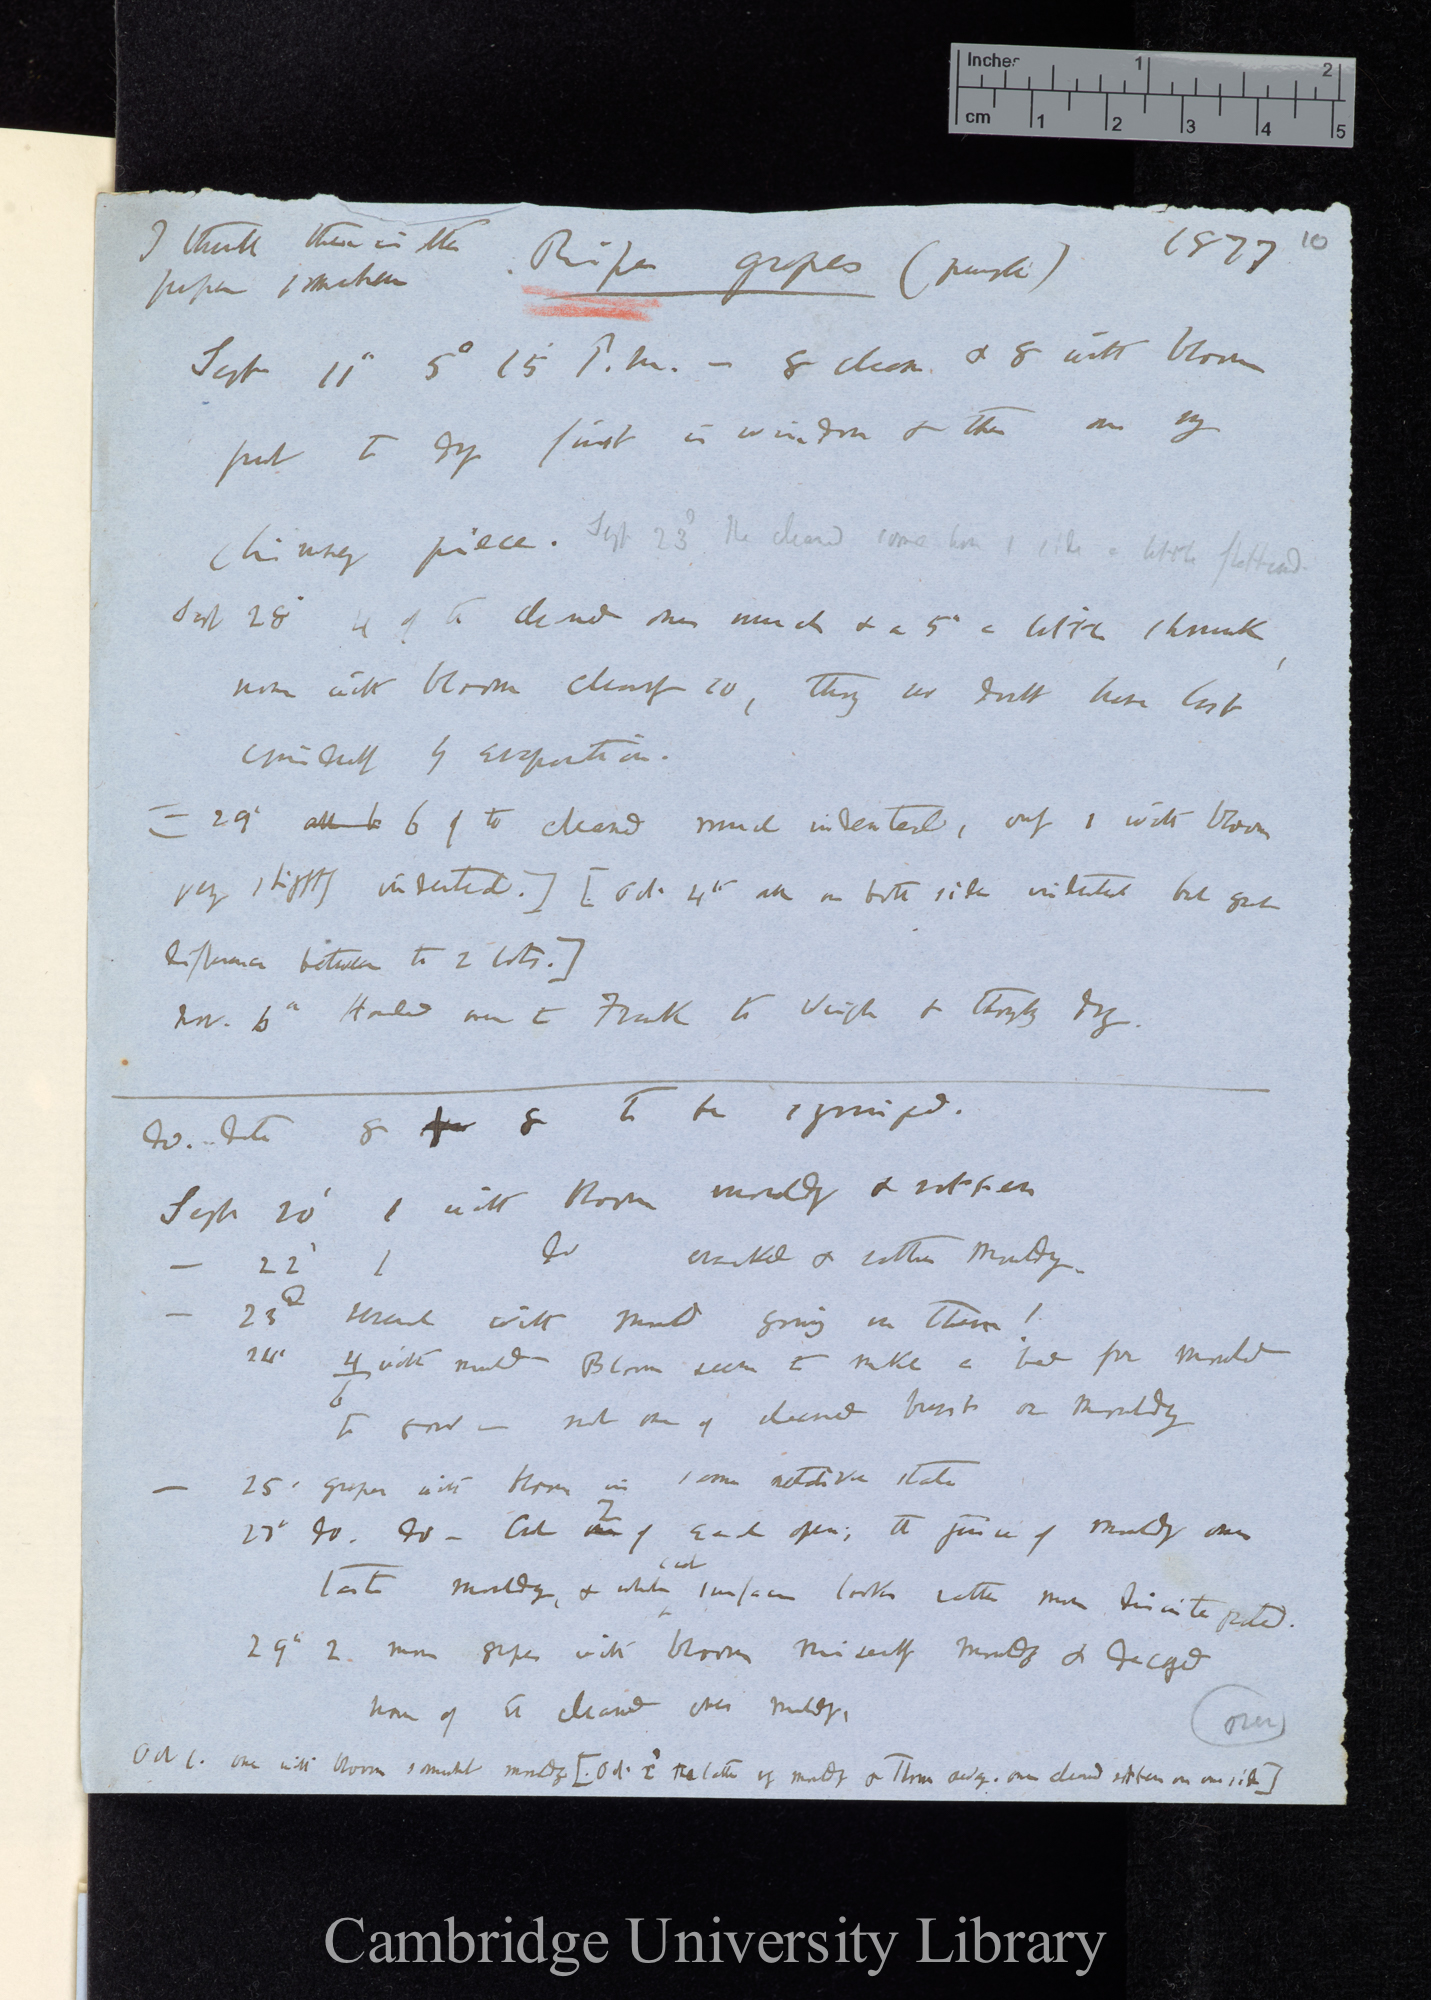 Inches 1 2
cm 1 2 3 4 5
I think there is the
paper somewhere
Ripe grapes (purple)
1877
10
Sept 11th 5° 15' P.m. — 8 clean & 8 with bloom
put to dry first in window & then on my
chimney piece. Sept 23d the cleaned ones have 1 side a little flattened.
Sept 28th 4 of the cleaned ones much & a 5th a little shrunk,
none with bloom clearly so, they no doubt have lost
equally by evaporation.
= 29th 6 of the cleaned much indented, only 1 with bloom
very slightly indented.] [Oct. 4th all on both sides indented but great
difference between the 2 lots.]
Nov. 6th Handed over to Frank to weigh & thoroughly dry.
do. date 8 & 8 to be syringed.
Sept 20th 1 with bloom mouldy & rotten
— 22d 1 do cracked & rather mouldy.
— 23d several with mould growing on them!
24th 4/6 with mould Bloom seems to make a bed for mould
to grow — not one of cleaned burst or mouldy
— 25th grapes with bloom in same relative state
27th do. do — Cut 2 of each open; the juice of mouldy ones
taste mouldy, & whole cut surface looks rather more disintegrated.
29th 2 more grapes with bloom miserably mouldy & decayed
none of the cleaned ones mouldy.
(over)
Oct 1. one with bloom somewhat mouldy [Oct. 2d the latter very mouldy & thrown away. one cleaned rotten on one side]
Cambridge University Library